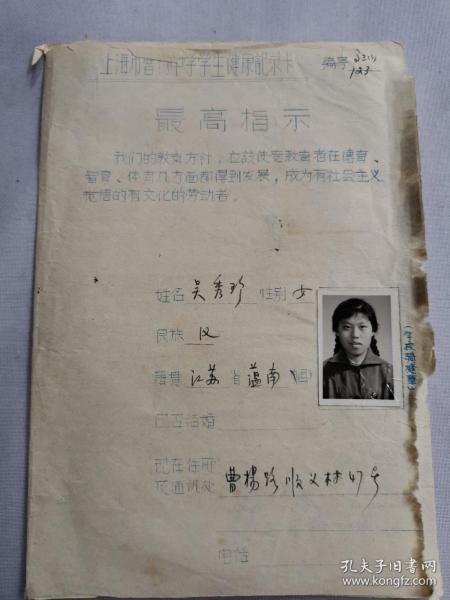 上海市普陀中学学生健康记录卡 编号
123
最高指示
我们的教育方针，应该使受教育者在德育、
智育、体育几方面都得到发展，成为有社会主义
觉悟的有文化的劳动者。
姓名 吴秀珍 性别 女
民族 汉
籍贯 江苏 省 南 县
是否结婚
现在住所
及通讯处 曹杨路顺义村47号
电话
孔夫子旧书网
www.kongfz.com